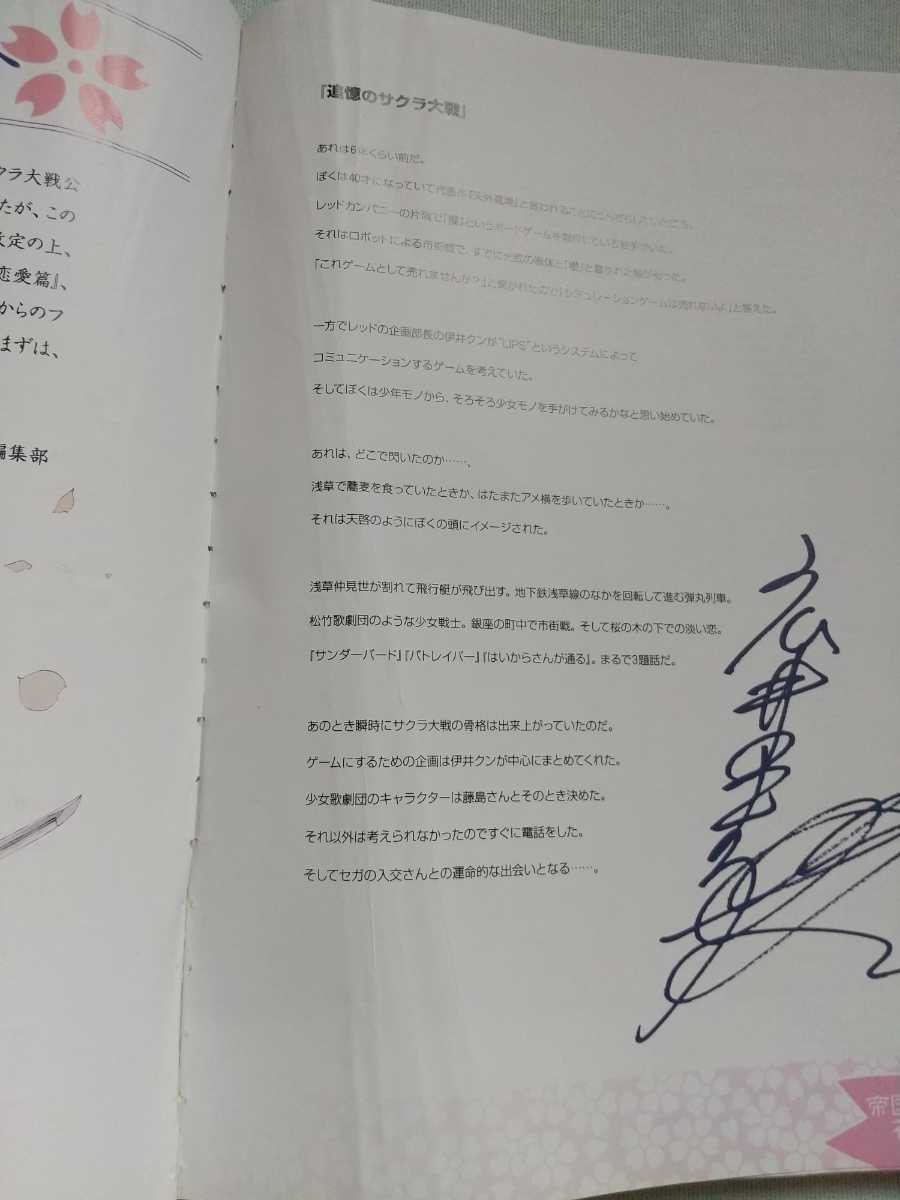 ラ大戦公
たが、この
改定の上、
恋愛篇』、
からのフ
まずは、
編集部
「追憶のサクラ大戦」
あれは6年くらい前だ。
ぼくは40才になっていて代表作『天外魔境』と言われることに
レッドカンパニーの片隅で「櫻」というボードゲームを製作している
それはロボットによる市街戦で、すでに
「これゲームとして売れませんか?」と聞かれたので「シミュレーションゲームは売れないよ」と答えた。
一方でレッドの企画部長の伊井クンが“LIPS”というシステムによって
コミュニケーションするゲームを考えていた。
そしてぼくは少年モノから、そろそろ少女モノを手がけてみるかなと思い始めていた。
あれは、どこで閃いたのか……、
浅草で蕎麦を食っていたときか、はたまたアメ横を歩いていたときか……。
それは天啓のようにぼくの頭にイメージされた。
浅草仲見世が割れて飛行艇が飛び出す。地下鉄浅草線のなかを回転して進む弾丸列車。
松竹歌劇団のような少女戦士。銀座の町中で市街戦。そして桜の木の下での淡い恋。
『サンダーバード』『パトレイバー』『はいからさんが通る』。まるで3題話だ。
あのとき瞬時にサクラ大戦の骨格は出来上がっていたのだ。
ゲームにするための企画は伊井クンが中心にまとめてくれた。
少女歌劇団のキャラクターは藤島さんとそのとき決めた。
それ以外は考えられなかったのですぐに電話をした。
そしてセガの入交さんとの運命的な出会いとなる……。
帝国